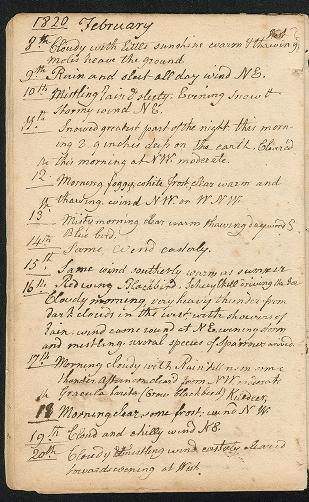 1820 February
8th Cloudy with little sunshine warm & thawing
moles heave the ground
9th Rain and sleet all day wind N E.
10th Mistling rain & sleety. Evening snow &
stormy wind N E.
11th Snowed greatest part of the night this morn-
ing 2 9 inches deep on the earth. Cleared
this morning at N W. moderate.
12 Morning foggy, white frost, clear warm and
thawing. wind N W. or W. N W.
13 Misty morning clear warm thawing day wind S
Blue bird.
14th Same, wind easterly.
15th Same wind southerly warm as summer
16th Red wing Blackbird.
Cloudy morning very heavy thunder from
dark clouds in the west with showers of
rain, wind came round at N E evening storm
and mistling. several species of Sparrows
17th Morning cloudy with Rain till noon some
thunder Afternoon cleard from N W
Gracula (Crow blackbird) Kildeer,
18 Morning clear, some frost; wind N W.
19th Cloud and chilly wind N E.
20th Cloudy & mistling wind easterly cleared
towards evening at West.